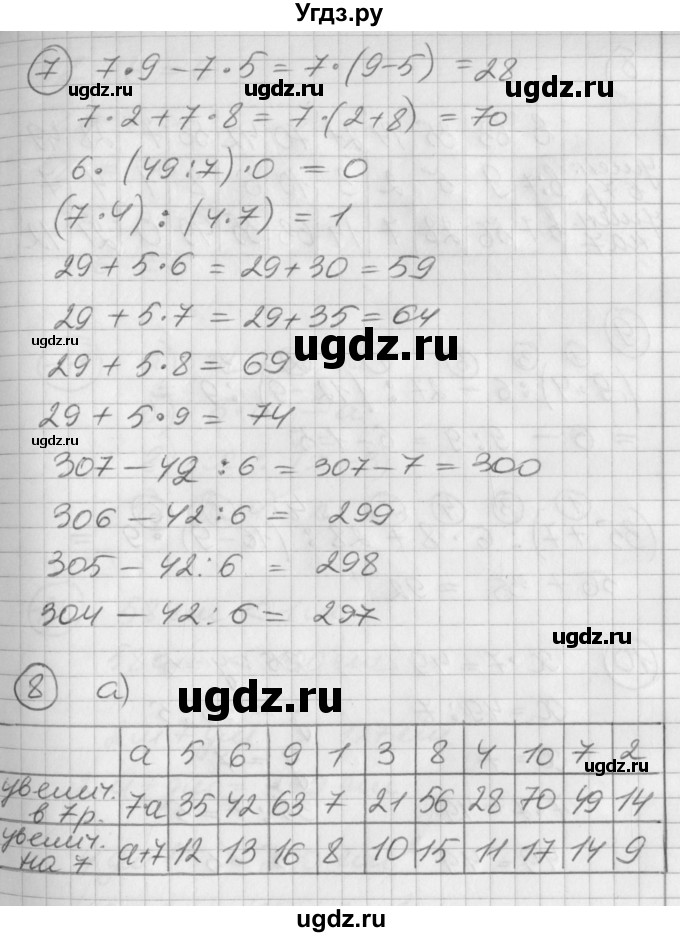 Угдз.ру
7 7·9-7·5=7·(9-5)=28
ugdz.ru ugdz.ru
7·2+7·8=7·(2+8)=70
ugdz.ru
6·(49:7)·0=0
(7·4):(4·7)=1
29+5·6=29+30=59
29+5·7=29+35=64
ugdz.ru ugdz.ru
29+5·8=69
29+5·9=74
ugdz.ru
307-42:6=307-7=300
306-42:6=299
305-42:6=298
304-42:6=297
ugdz.ru
8 а)
ugdz.ru
а 5 6 9 1 3 8 4 10 7 2
ugdz.ru
увелич. в 7р. 7а 35 42 63 7 21 56 28 70 49 14
увелич. на 7 а+7 12 13 16 8 10 15 11 17 14 9
ugdz.ru